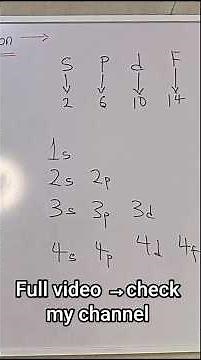 on →
S P d F
↓ ↓ ↓ ↓
2 6 10 14
1s
2s 2p
3s 3p 3d
4s 4p 4d 4f
Full video → check
my channel